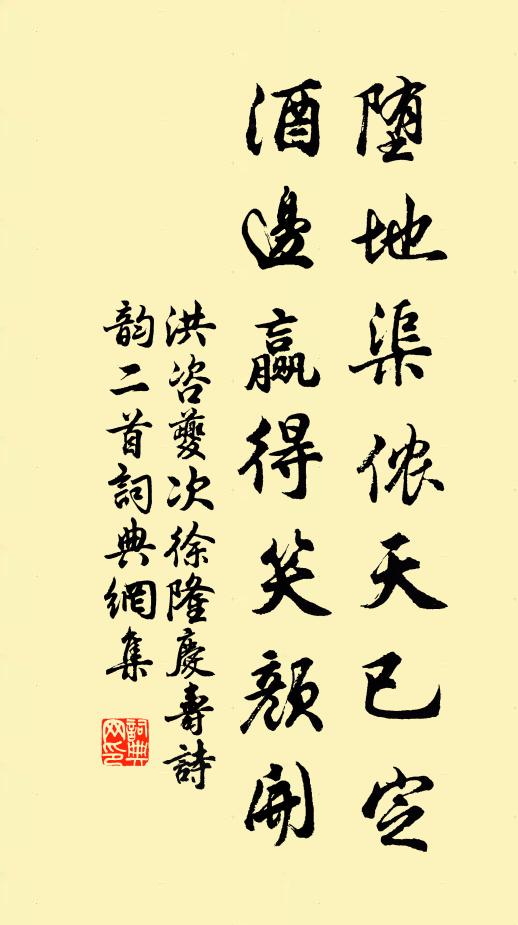 堕地渠侬天已定
酒邊赢得笑颜開
洪咨夔次徐隆慶壽詩
韵二首詞典網集
詞典網印